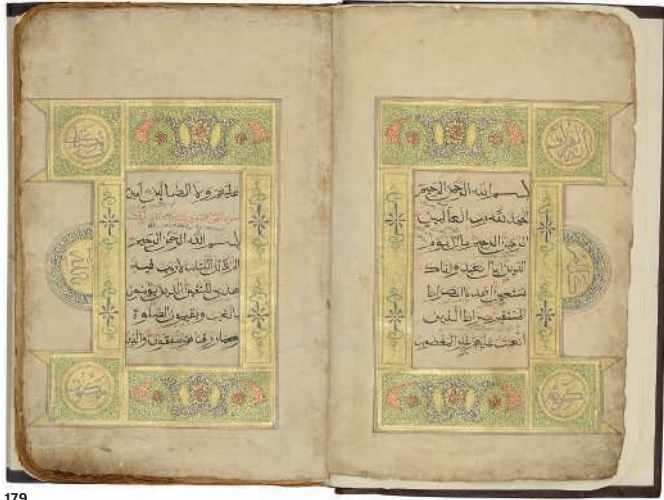 بسم الله الرحمن الرحيم
الحمد لله رب العالمين
الرحمن الرحيم مالك يوم
الدين اياك نعبد واياك
نستعين اهدنا الصراط
المستقيم صراط الذين
انعمت عليهم غير المغضوب
عليهم ولا الضالين امين
بسم الله الرحمن الرحيم
الم ذلك الكتاب لا ريب فيه
هدى للمتقين الذين يؤمنون
بالغيب ويقيمون الصلوة
ومما رزقناهم ينفقون والذين
179